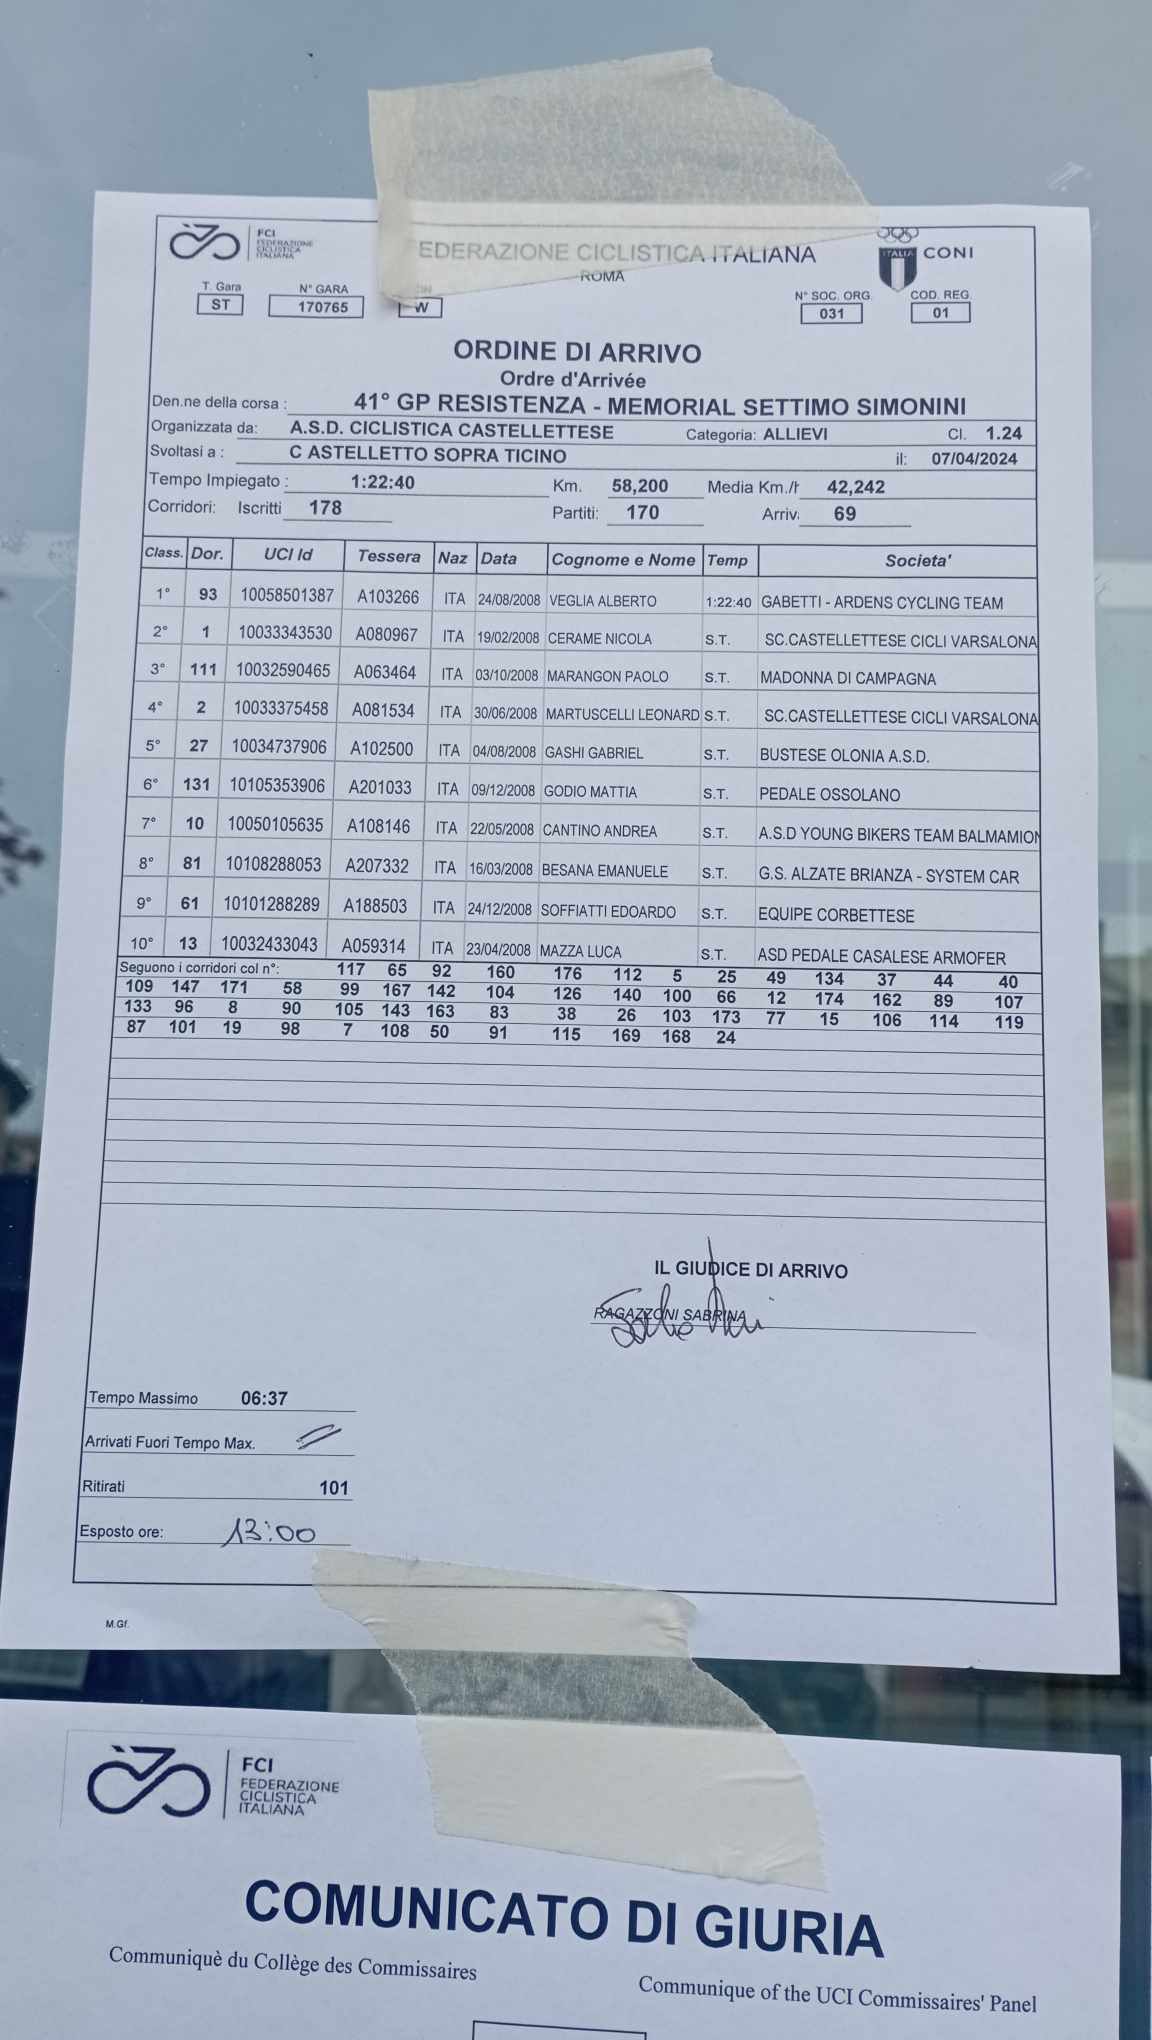 FCI
FEDERAZIONE
CICLISTICA
ITALIANA
EDERAZIONE CICLISTICA ITALIANA
ROMA
ITALIA
CONI
T. Gara N° GARA N° SOC. ORG. COD. REG.
ST 170765 W 031 01
ORDINE DI ARRIVO
Ordre d'Arrivée
Den.ne della corsa : 41° GP RESISTENZA - MEMORIAL SETTIMO SIMONINI
Organizzata da: A.S.D. CICLISTICA CASTELLETTESE Categoria: ALLIEVI Cl. 1.24
Svoltasi a : C ASTELLETTO SOPRA TICINO il: 07/04/2024
Tempo Impiegato : 1:22:40 Km. 58,200 Media Km./h 42,242
Corridori: Iscritti 178 Partiti: 170 Arriv. 69
Class. Dor. UCI Id Tessera Naz Data Cognome e Nome Temp Societa'
1° 93 10058501387 A103266 ITA 24/08/2008 VEGLIA ALBERTO 1:22:40 GABETTI - ARDENS CYCLING TEAM
2° 1 10033343530 A080967 ITA 19/02/2008 CERAME NICOLA S.T. SC.CASTELLETTESE CICLI VARSALONA
3° 111 10032590465 A063464 ITA 03/10/2008 MARANGON PAOLO S.T. MADONNA DI CAMPAGNA
4° 2 10033375458 A081534 ITA 30/06/2008 MARTUSCELLI LEONARD S.T. SC.CASTELLETTESE CICLI VARSALONA
5° 27 10034737906 A102500 ITA 04/08/2008 GASHI GABRIEL S.T. BUSTESE OLONIA A.S.D.
6° 131 10105353906 A201033 ITA 09/12/2008 GODIO MATTIA S.T. PEDALE OSSOLANO
7° 10 10050105635 A108146 ITA 22/05/2008 CANTINO ANDREA S.T. A.S.D YOUNG BIKERS TEAM BALMAMION
8° 81 10108288053 A207332 ITA 16/03/2008 BESANA EMANUELE S.T. G.S. ALZATE BRIANZA - SYSTEM CAR
9° 61 10101288289 A188503 ITA 24/12/2008 SOFFIATTI EDOARDO S.T. EQUIPE CORBETTESE
10° 13 10032433043 A059314 ITA 23/04/2008 MAZZA LUCA S.T. ASD PEDALE CASALESE ARMOFER
Seguono i corridori col n°: 117 65 92 160 176 112 5 25 49 134 37 44 40
109 147 171 58 99 167 142 104 126 140 100 66 12 174 162 89 107
133 96 8 90 105 143 163 83 38 26 103 173 77 15 106 114 119
87 101 19 98 7 108 50 91 115 169 168 24
IL GIUDICE DI ARRIVO
RAGAZZONI SABRINA
Tempo Massimo 06:37
Arrivati Fuori Tempo Max.
Ritirati 101
Esposto ore: 13:00
M.Gf.
FCI
FEDERAZIONE
CICLISTICA
ITALIANA
COMUNICATO DI GIURIA
Communiquè du Collège des Commissaires
Communique of the UCI Commissaires' Panel